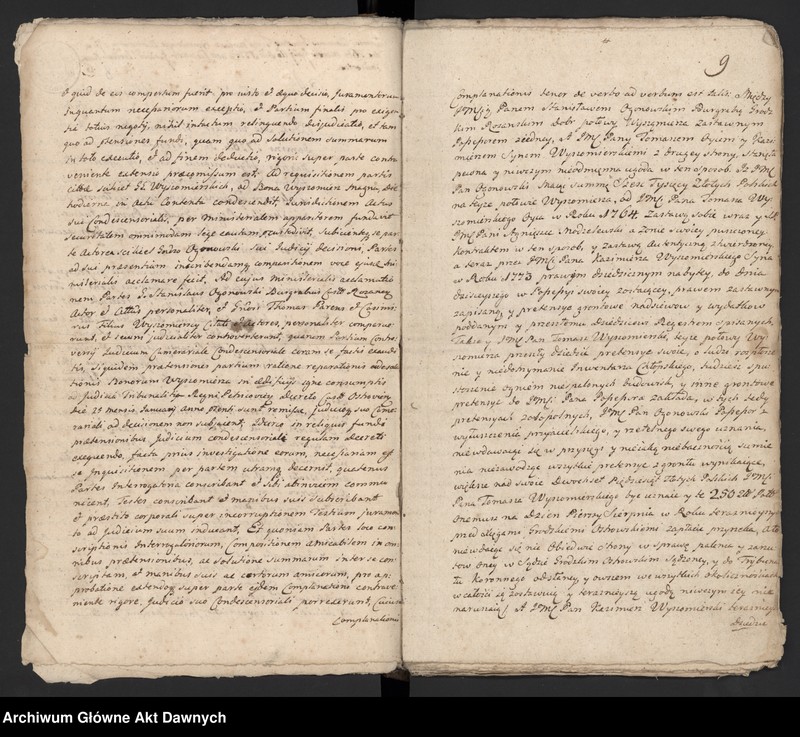 quid de eis compertum fuerit pro iusto et æquo decisio, Juramentorum
inquantum necessariorum exceptio, et Partium finalis pro exigen-
tia totius negotij, nihil intactum relinquendo dijudicatio, et tam
quo ad ptensiones fundi, quam quo ad Solutionem Summarum
in toto executio, et ad finem deductio, rigori super parte contra-
veniente extensio præcomissum est. Ad requisitionem partis
Wyszomirskich, ad Bona Wyszomirz Magna
hodierno in Actu Contenta condescendit, Jurisdictionem Actus
sui Condescensorialis, per Ministerialem apparitorem fundavit
Securitatem omnimodam custodivit, subinde ex par-
te Actorea Ozonowski Sui Judicij decisioni, Partes
ad sui præsentiam inscribendamq compositionem voce
nisterialis acclamare fecit, Ad cujus ministerialis acclamatio-
nem, Partes Stanislaus Ozonowski Burgrabius Rozanen
Actor et Citatus personaliter, et Thomas Parens et Casimi-
rus Filius Wyszomirscy Citati et Actores, personaliter comparue-
runt, et secum judicialiter controverterunt, quarum Partium Contro-
versij Judicium Condescensoriale coram se factis exaudi-
tis, Siquidem prætensiones partium ratione reparationis
Bonorum Wyszomirza in igne consumptis
a Judicio Tribunalitio Regni Petricovien Decreto
die 25 mensis January anno sunt remissæ, judicioq suo
rariali ad decisionem non subjacent, Ideoq in reliquis fundi
prætensionibus Judicium condescensoriale regulam decreti
exequendo, facta prius investigatione earum, necessariam es-
se Inquisitionem per partem utramq decernit, quatenus
Partes Interrogatoria conscribant et sibi ad invicem commu-
nicent, Testes conscribant et manibus suis subscribant
et præstito corporali super incorruptionem Testium juramen-
to ad Judicium suum inducant, Et quoniam Partes loco con-
scriptionis Interrogatoriorum, Compositionem amicabilem in om-
nibus prætensionibus, ac solutione Summarum inter se con-
scriptam, et manibus suis ac certorum amicorum, pro ap-
probatione extensoq super parte eidem Complanationi contrave-
niente rigore, Judicio suo Condescensoriali porrexerunt, Cujus
Complanationis
9
omplanationis tenor de verbo ad verbum est talis. Między
Jmcią Panem Stanisławem Ozonowskim Burgrabią Grodz-
kim Rozanskim dobr połowy Wyszomirza zastawnym
Possessorem z iedney, a Jmć Pany Tomaszem Oycem y Kazi-
mierzem Synem Wyszomirskiemi z drugiey strony, stanęła
pewna y niwczym nieodmienna ugoda w ten sposob. Iz Jmć
Pan Ozonowski Maiąc Summę Tysięcy Złotych Polskich
na tejze połowie Wyszomirza, od Jmć Pana Tomasza Wy-
szomirskiego Oyca w Roku 1764. Zastawą Sobie wraz y
Jmć Pani Agnieszce Modzelewski a Zonie swoiey puszczoney
Kontraktem w ten sposob, y zastawą Autentyczną stwierdzoney,
a teraz przez Jmć Pana Kazimierza Wyszomirskiego Syna
w Roku 1773 prawem dziedzicznym nabytey, do dnia
dzisieyszego w Possessyi swoiey zostaiącey, prawem zastawnym
zapisaną, y pretensye gruntowe nadsiewow y wydatkow
poddanym y przeszłemu Dziedzicowi Regestrem spisanych,
Także y Jmć Pan Tomasz Wyszomirski, tejze połowy Wy-
szomirza przeszły Dziedzic pretensye swoie, o ludzi rozpłosze-
nie y niedotrzymanie Inwentarza Chłopskiego, tudziesz spu-
stoszenie ogniem niespalnych budynkow, y inne gruntowe
pretensye do Jmść Pana Possessora zakłada, w tych tedy
pretensyach Jmć Pan Ozonowski Possessor z
wytłuszczenia przyiacielskiego, y rzetelnego swego uznania,
niewdawaiąc się w przysięgi y uciążliwą niebaczność sumie-
nia niezawodząc wszystkie pretensye z gruntu wynikaiące,
większe nad swoie Dwieście Pięćdziesiąt Złotych Polskich
Pana Tomasza Wyszomirskiego byc uznaie y te 250 Złł Polł
Onemusz na Dzien Pierwszy Sierpnia w Roku teraznieyszym
przed aktami Grodzkiemi Ostrowskiemi zapłacic przyrzeka, a to
niewdaiąc się nic Obiedwie strony w sprawę palenia y zarzu-
tow oney w Sądzie Grodzkim Ostrowskim sądzoney, y do Trybuna-
łu Koronnego odesłaney, y owszem we wszystkich okolicznościach
w całości iey zostawuią y teraznieyszą ugodą niwczym iey nie
naruszaią, A Jmć Pan Kazimierz Wyszomirski teraznieyszy
Dziedzic
Archiwum Główne Akt Dawnych